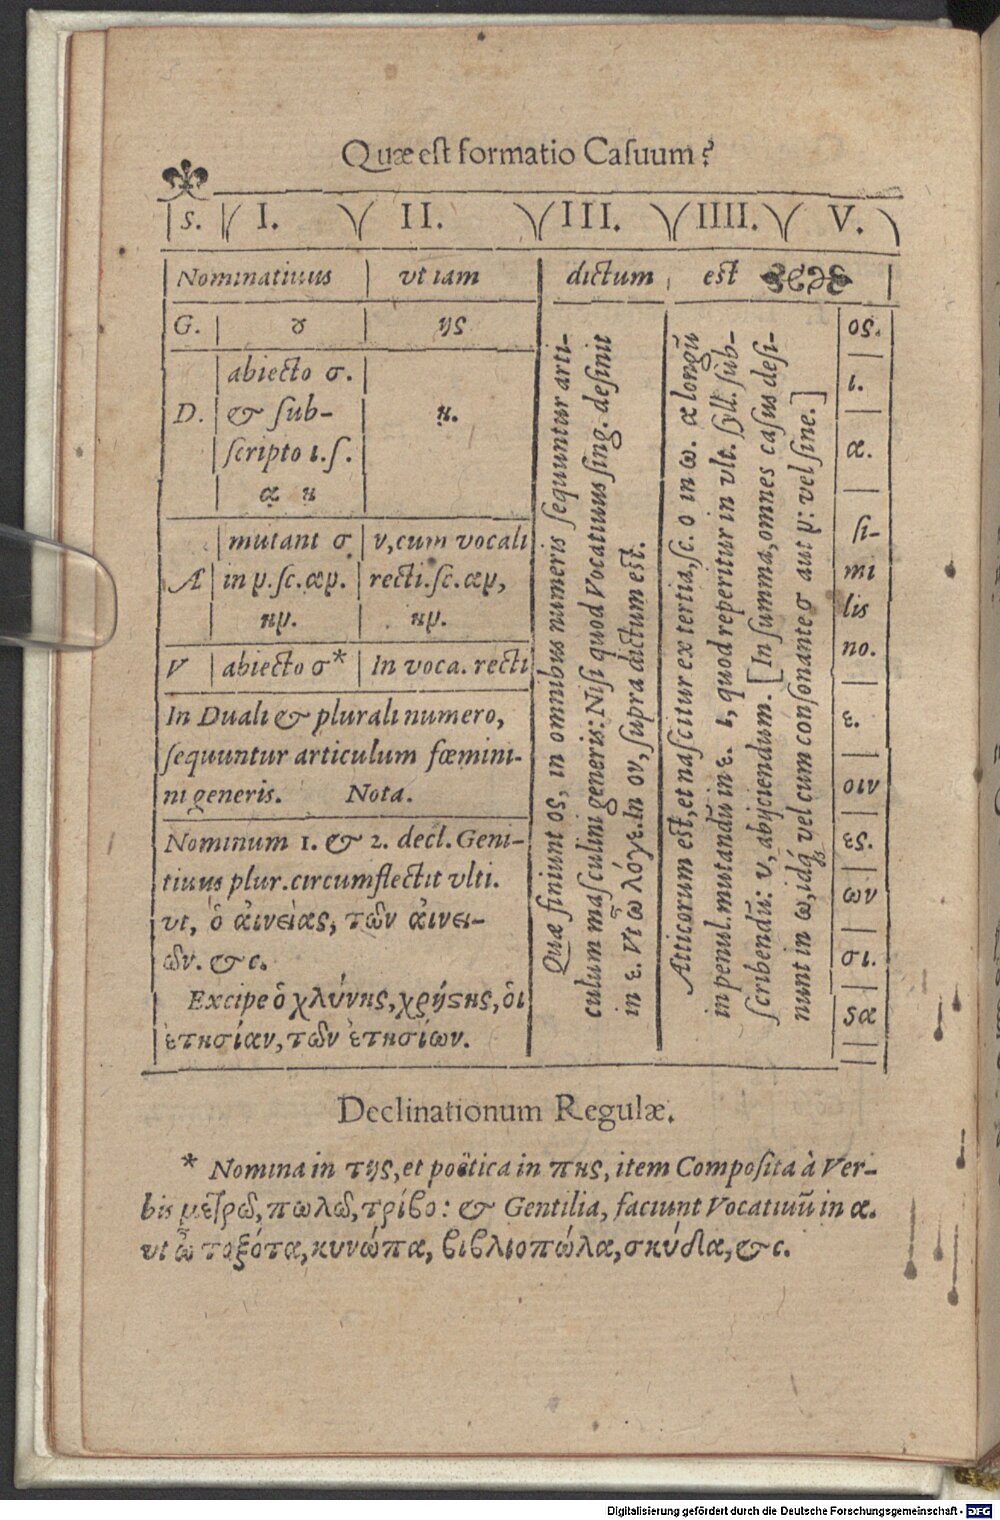 Quæ est formatio Casuum?
S. I. II. III. IIII. V.
Nominatiuus vt iam dictum est
G. ȣ ης
abiecto σ.
D. & sub- ῃ.
scripto ι. s.
ᾳ ῃ
mutant σ ν, cum vocali
Æ in ν. sc. αν. recti. sc. αν,
ην. ην.
V abiecto σ* In voca. recti
In Duali & plurali numero,
sequuntur articulum fœmini-
ni generis. Nota.
Nominum 1. & 2. decl. Geni-
tiuus plur. circumflectit vlti.
vt, ὁ ἀινείας, τῶν ἀινει-
ῶν. & c.
Excipe ὁ χλύνης, χρήςης, ὁι
ἐτησίαν, τῶν ἐτησίων.
Quæ finiunt ος, in omnibus numeris sequuntur arti-
culum masculini generis: Nisi quod Vocatiuus sing. desinit
in ε. Vt ὦ λόγε. In ον, supra dictum est.
Atticorum est, et nascitur ex tertia, sc. ο in ω. α longū
in penul. mutandū in ε. ι, quod reperitur in vlt. syll. sub-
scribendū: υ, abijciendum. [In summa, omnes casus desi-
nunt in ω, idq́; vel cum consonante σ aut ν: vel sine.]
ος.
ι.
α.
si-
mi
lis
no.
ε.
οιν
ες.
ων
σι.
ςα
Declinationum Regulæ.
* Nomina in της, et poëtica in πης, item Composita à Ver-
bis μετρῶ, πωλῶ, τρίβο: & Gentilia, faciunt Vocatiuū in α.
vt ὦ τοξότα, κυνώπα, βιβλιοπώλα, σκύθα, & c.
Digitalisierung gefördert durch die Deutsche Forschungsgemeinschaft - DFG